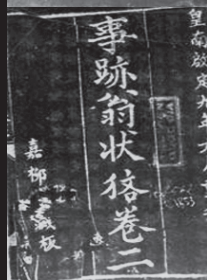 皇南啟定九年六月
事跡翁状狢卷二
嘉柳
藏板